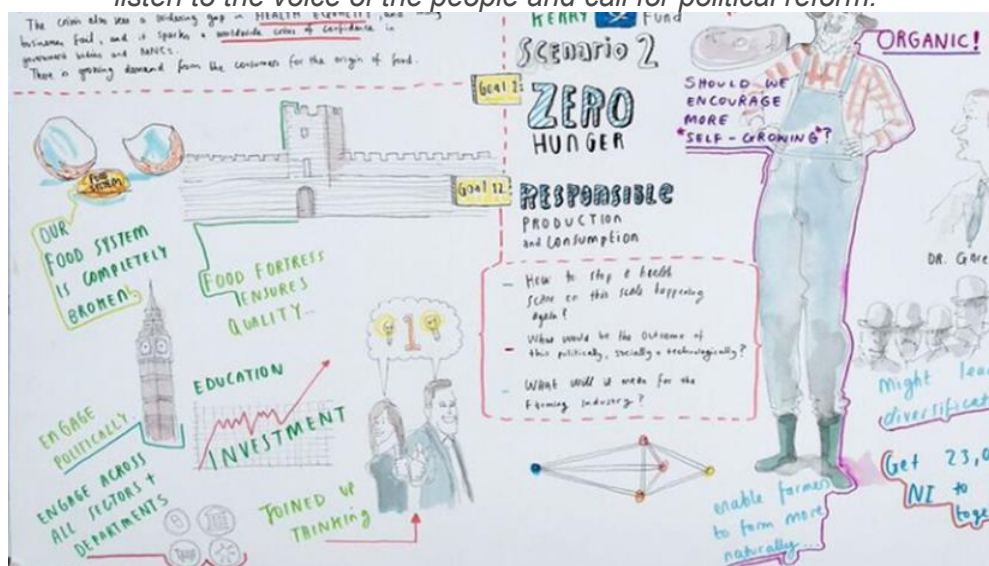 listen to the voice of the people and call for political reform.
The crisis also sees a widening gap in HEALTH
business fail, and it sparks a worldwide crisis of confidence in
government bodies and BANKS.
There is growing demand from the consumer for the origin of food.
FOOD
SYSTEM
OUR
FOOD SYSTEM
IS COMPLETELY
BROKEN!
FOOD FORTRESS
ENSURES
QUALITY...
ENGAGE
POLITICALLY
EDUCATION
INVESTMENT
1
ENGAGE ACROSS
ALL SECTORS +
DEPARTMENTS
JOINED UP
THINKING
KERRY Fund
Scenario 2
Goal 2:
ZERO
HUNGER
Goal 12:
RESPONSIBLE
PRODUCTION
and CONSUMPTION
- How to stop a health
scare on this scale happening
again?
- What would be the outcome of
this politically, socially + technologically?
- What will it mean for the
Farming Industry?
ORGANIC!
SHOULD WE
ENCOURAGE
MORE
*SELF-GROWING*?
DR. Gare
might lea
diversificat
Get 23,0
NI to
toge
enable farmers
to farm more
naturally...